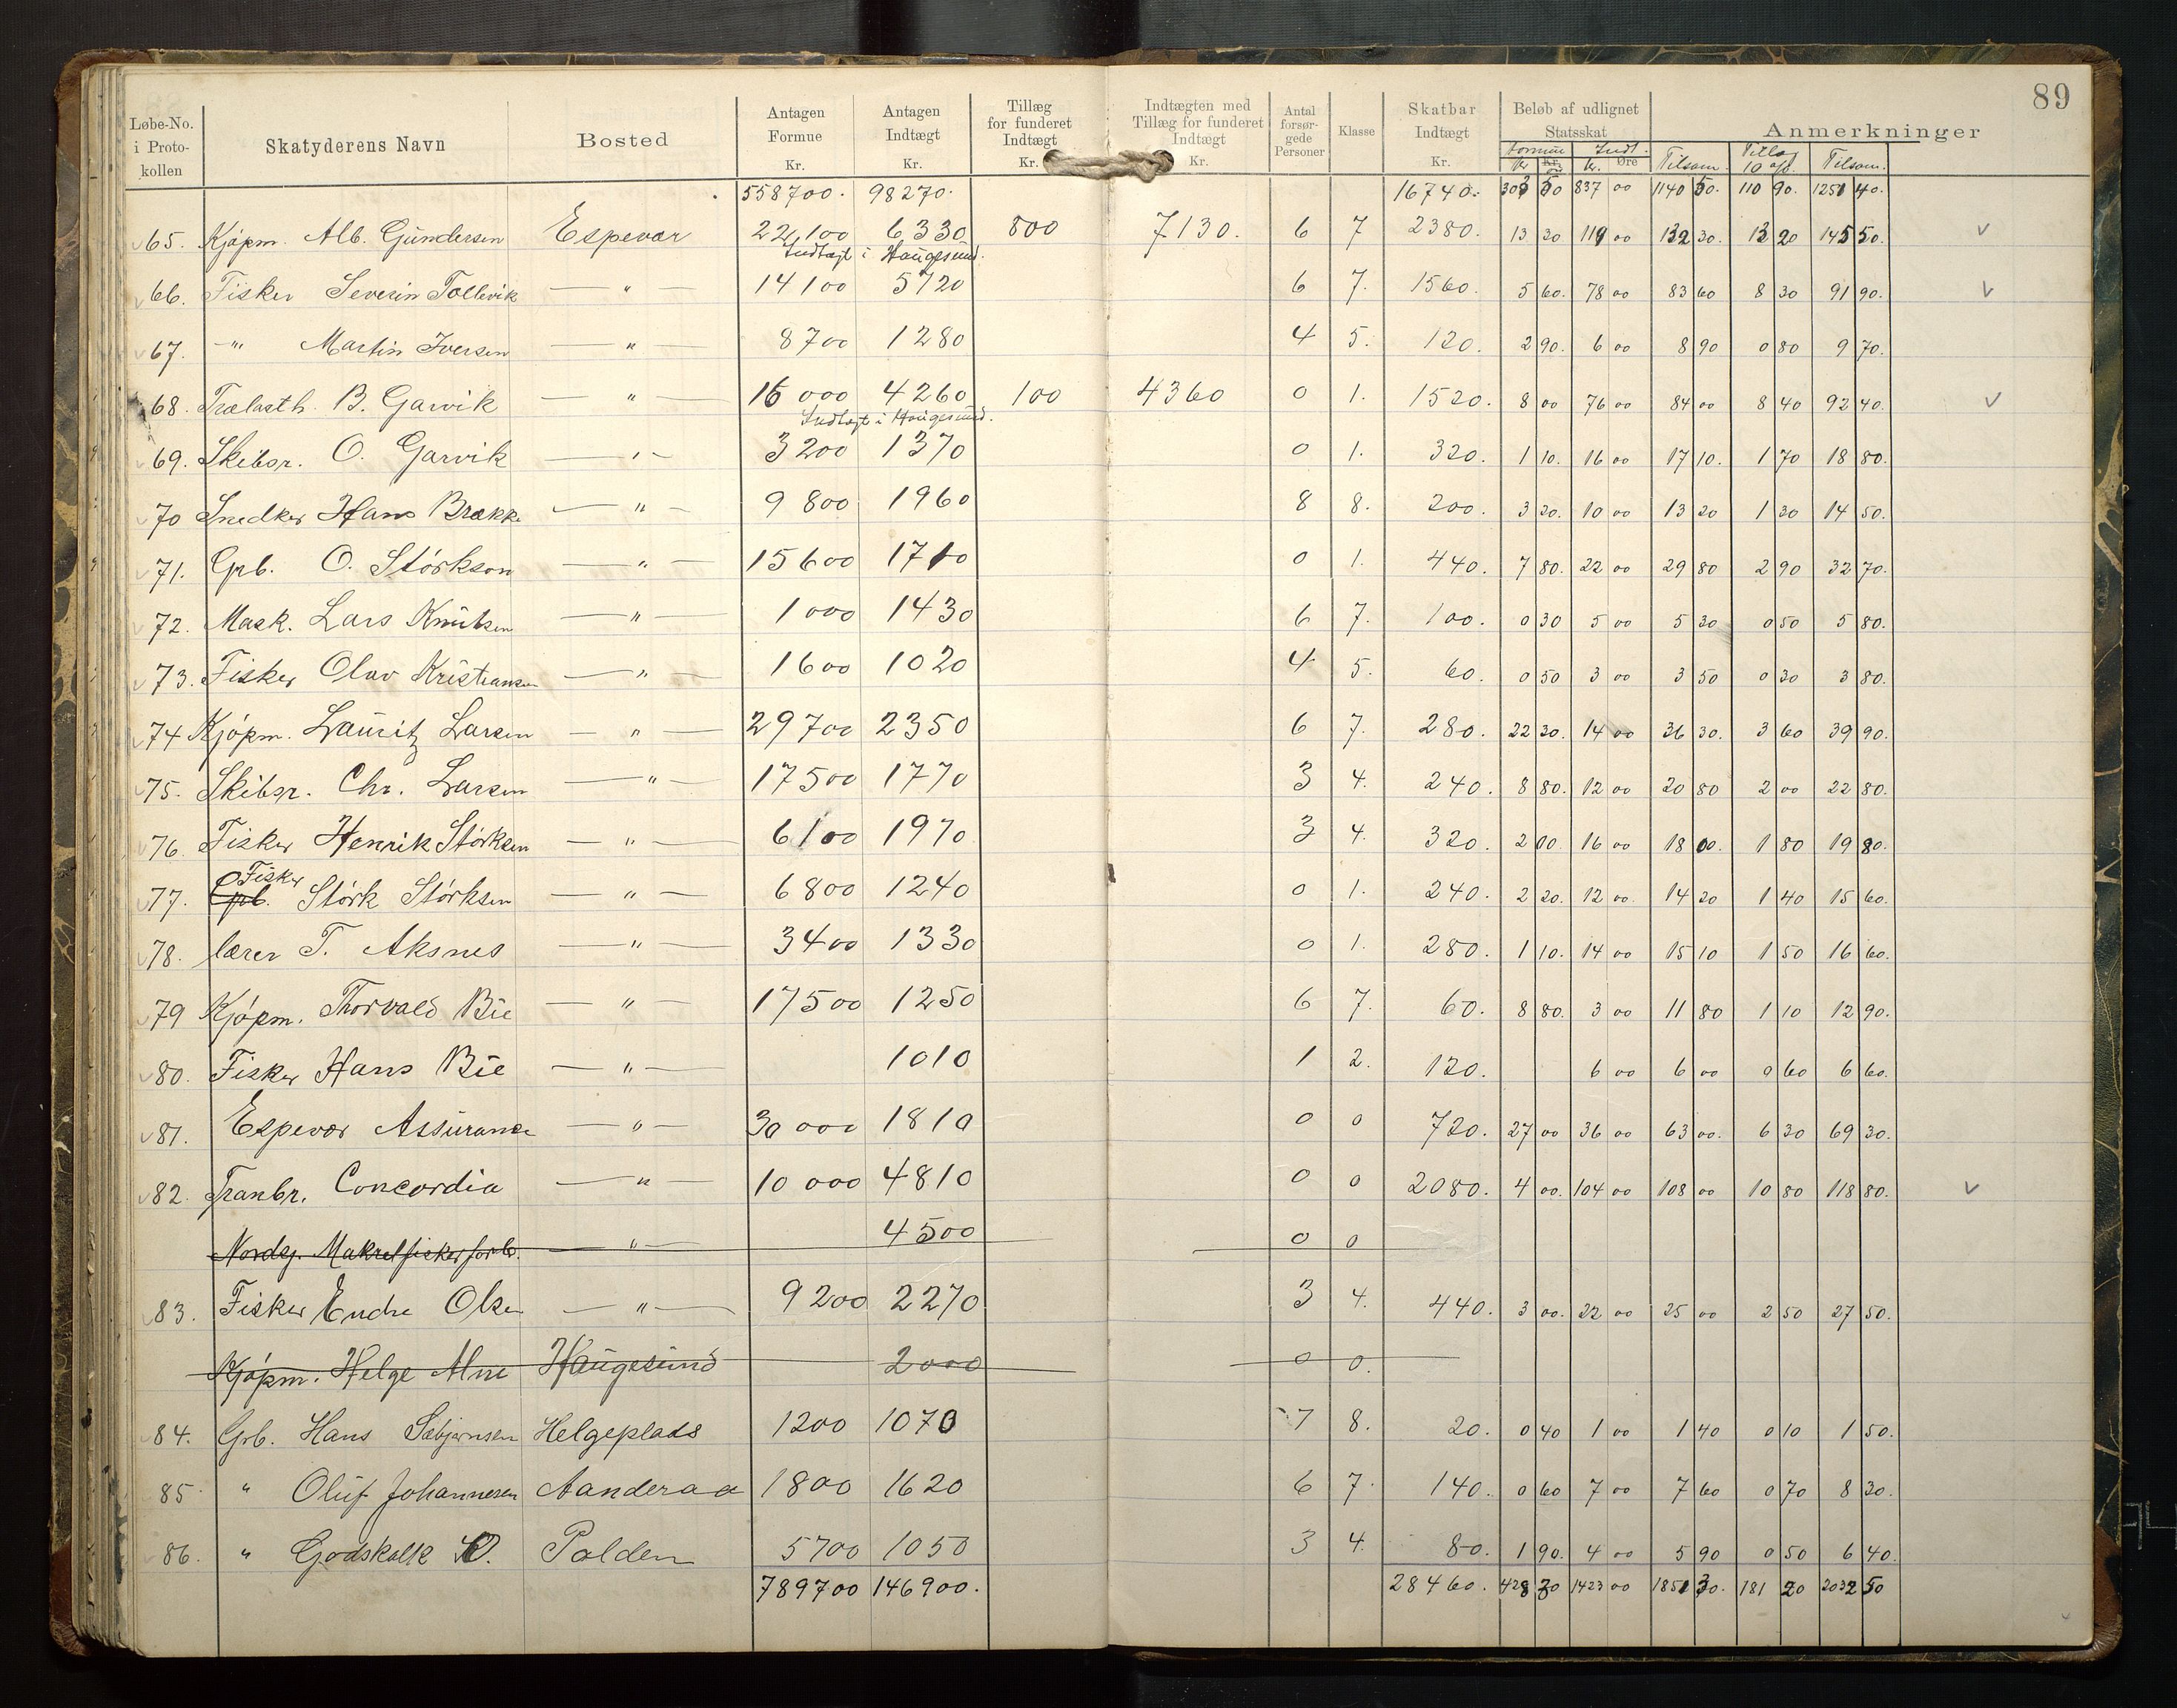 89
Løbe-No. i Protokollen | Skatyderens Navn | Bosted | Antagen Formue Kr. | Antagen Indtægt Kr. | Tillæg for funderet Indtægt Kr. | Indtægten med Tillæg for funderet Indtægt Kr. | Antal forsørgede Personer | Klasse | Skatbar Indtægt Kr. | Beløb af udlignet Statsskat | Anmerkninger
Formue Kr. | Indt. Kr. Øre | Tilsam. | Tillæg 10 % | Tilsam.
558700. 98270. 16740. 303 50 837 00 1140 50. 110 90. 1251 40.
65. Kjøpm. Alb. Gundersen Espevær 22100 6330 800 7130. 6 7 2380. 13 30 119 00 132 30. 13 20 145 50.
Indtægt i Haugesund.
66. Fisker Severin Tollevik — " — 14100 5720 6 7. 1560. 5 60. 78 00 83 60 8 30 91 90.
67. -"- Martin Iversen — " — 8700 1280 4 5. 120. 2 90. 6 00 8 90 0 80 9 70.
68. Trælasth. B. Garvik — " — 16000 4260 100 4360 0 1. 1520. 8 00 76 00 84 00 8 40 92 40.
Indtægt i Haugesund.
69. Skibsr. O. Garvik — " — 3200 1370 0 1. 320. 1 10. 16 00 17 10. 1 70 18 80.
70 Snedker Hans Brække — " — 9800 1960 8 8. 200. 3 20. 10 00 13 20 1 30 14 50.
71. Grb. O. Størkson — " — 15600 1710 0 1. 440. 7 80. 22 00 29 80 2 90 32 70.
72. Mask. Lars Knutsen — " — 1000 1430 6 7. 100. 0 30 5 00 5 30 0 50 5 80.
73. Fisker Olav Kristiansen — " — 1600 1020 4 5. 60. 0 50 3 00 3 50 0 30 3 80.
74 Kjøpm. Lauritz Larsen — " — 29700 2350 6 7. 280. 22 30. 14 00 36 30. 3 60 39 90.
75. Skibsr. Chr. Larsen — " — 17500 1770 3 4. 240. 8 80. 12 00 20 80 2 00 22 80.
76. Fisker Henrik Størksen — " — 6100 1970 3 4. 320. 2 00. 16 00 18 00. 1 80 19 80.
Fisker
77. Grb. Størk Størksen — " — 6800 1240 0 1. 240. 2 20. 12 00. 14 20 1 40 15 60.
78. lærer T. Aksnes — " — 3400 1330 0 1. 280. 1 10. 14 00 15 10 1 50 16 60.
79 Kjøpm. Thorvald Bie — " — 17500 1250 6 7. 60. 8 80. 3 00 11 80 1 10 12 90.
80. Fisker Hans Bie — " — 1010 1 2. 120. 6 00 6 00 0 60 6 60.
81. Espevær Assurance — " — 30000 1810 0 0 720. 27 00 36 00 63 00. 6 30 69 30.
82. Tranbr. Concordia — " — 10000 4810 0 0 2080. 4 00. 104 00 108 00 10 80 118 80.
Nordsj. Makrelfiskerforb. — " — 4500 0 0
83. Fisker Endre Olsen — " — 9200 2270 3 4. 440. 3 00. 22 00 25 00 2 50 27 50.
Kjøpm. Helge Alne Haugesund 2000 0 0.
84. Grb. Hans Sæbjørnsen Helgeplads 1200 1070 7 8. 20. 0 40 1 00 1 40 0 10 1 50.
85 " Oluf Johannesen Aanderaa 1800 1620 6 7. 140. 0 60 7 00 7 60 0 70 8 30.
86. " Godskalk O. Polden 5700 1050 3 4. 80. 1 90. 4 00 5 90 0 50 6 40.
789700 146900. 28460. 428 30 1423 00 1851 30. 181 20 2032 50